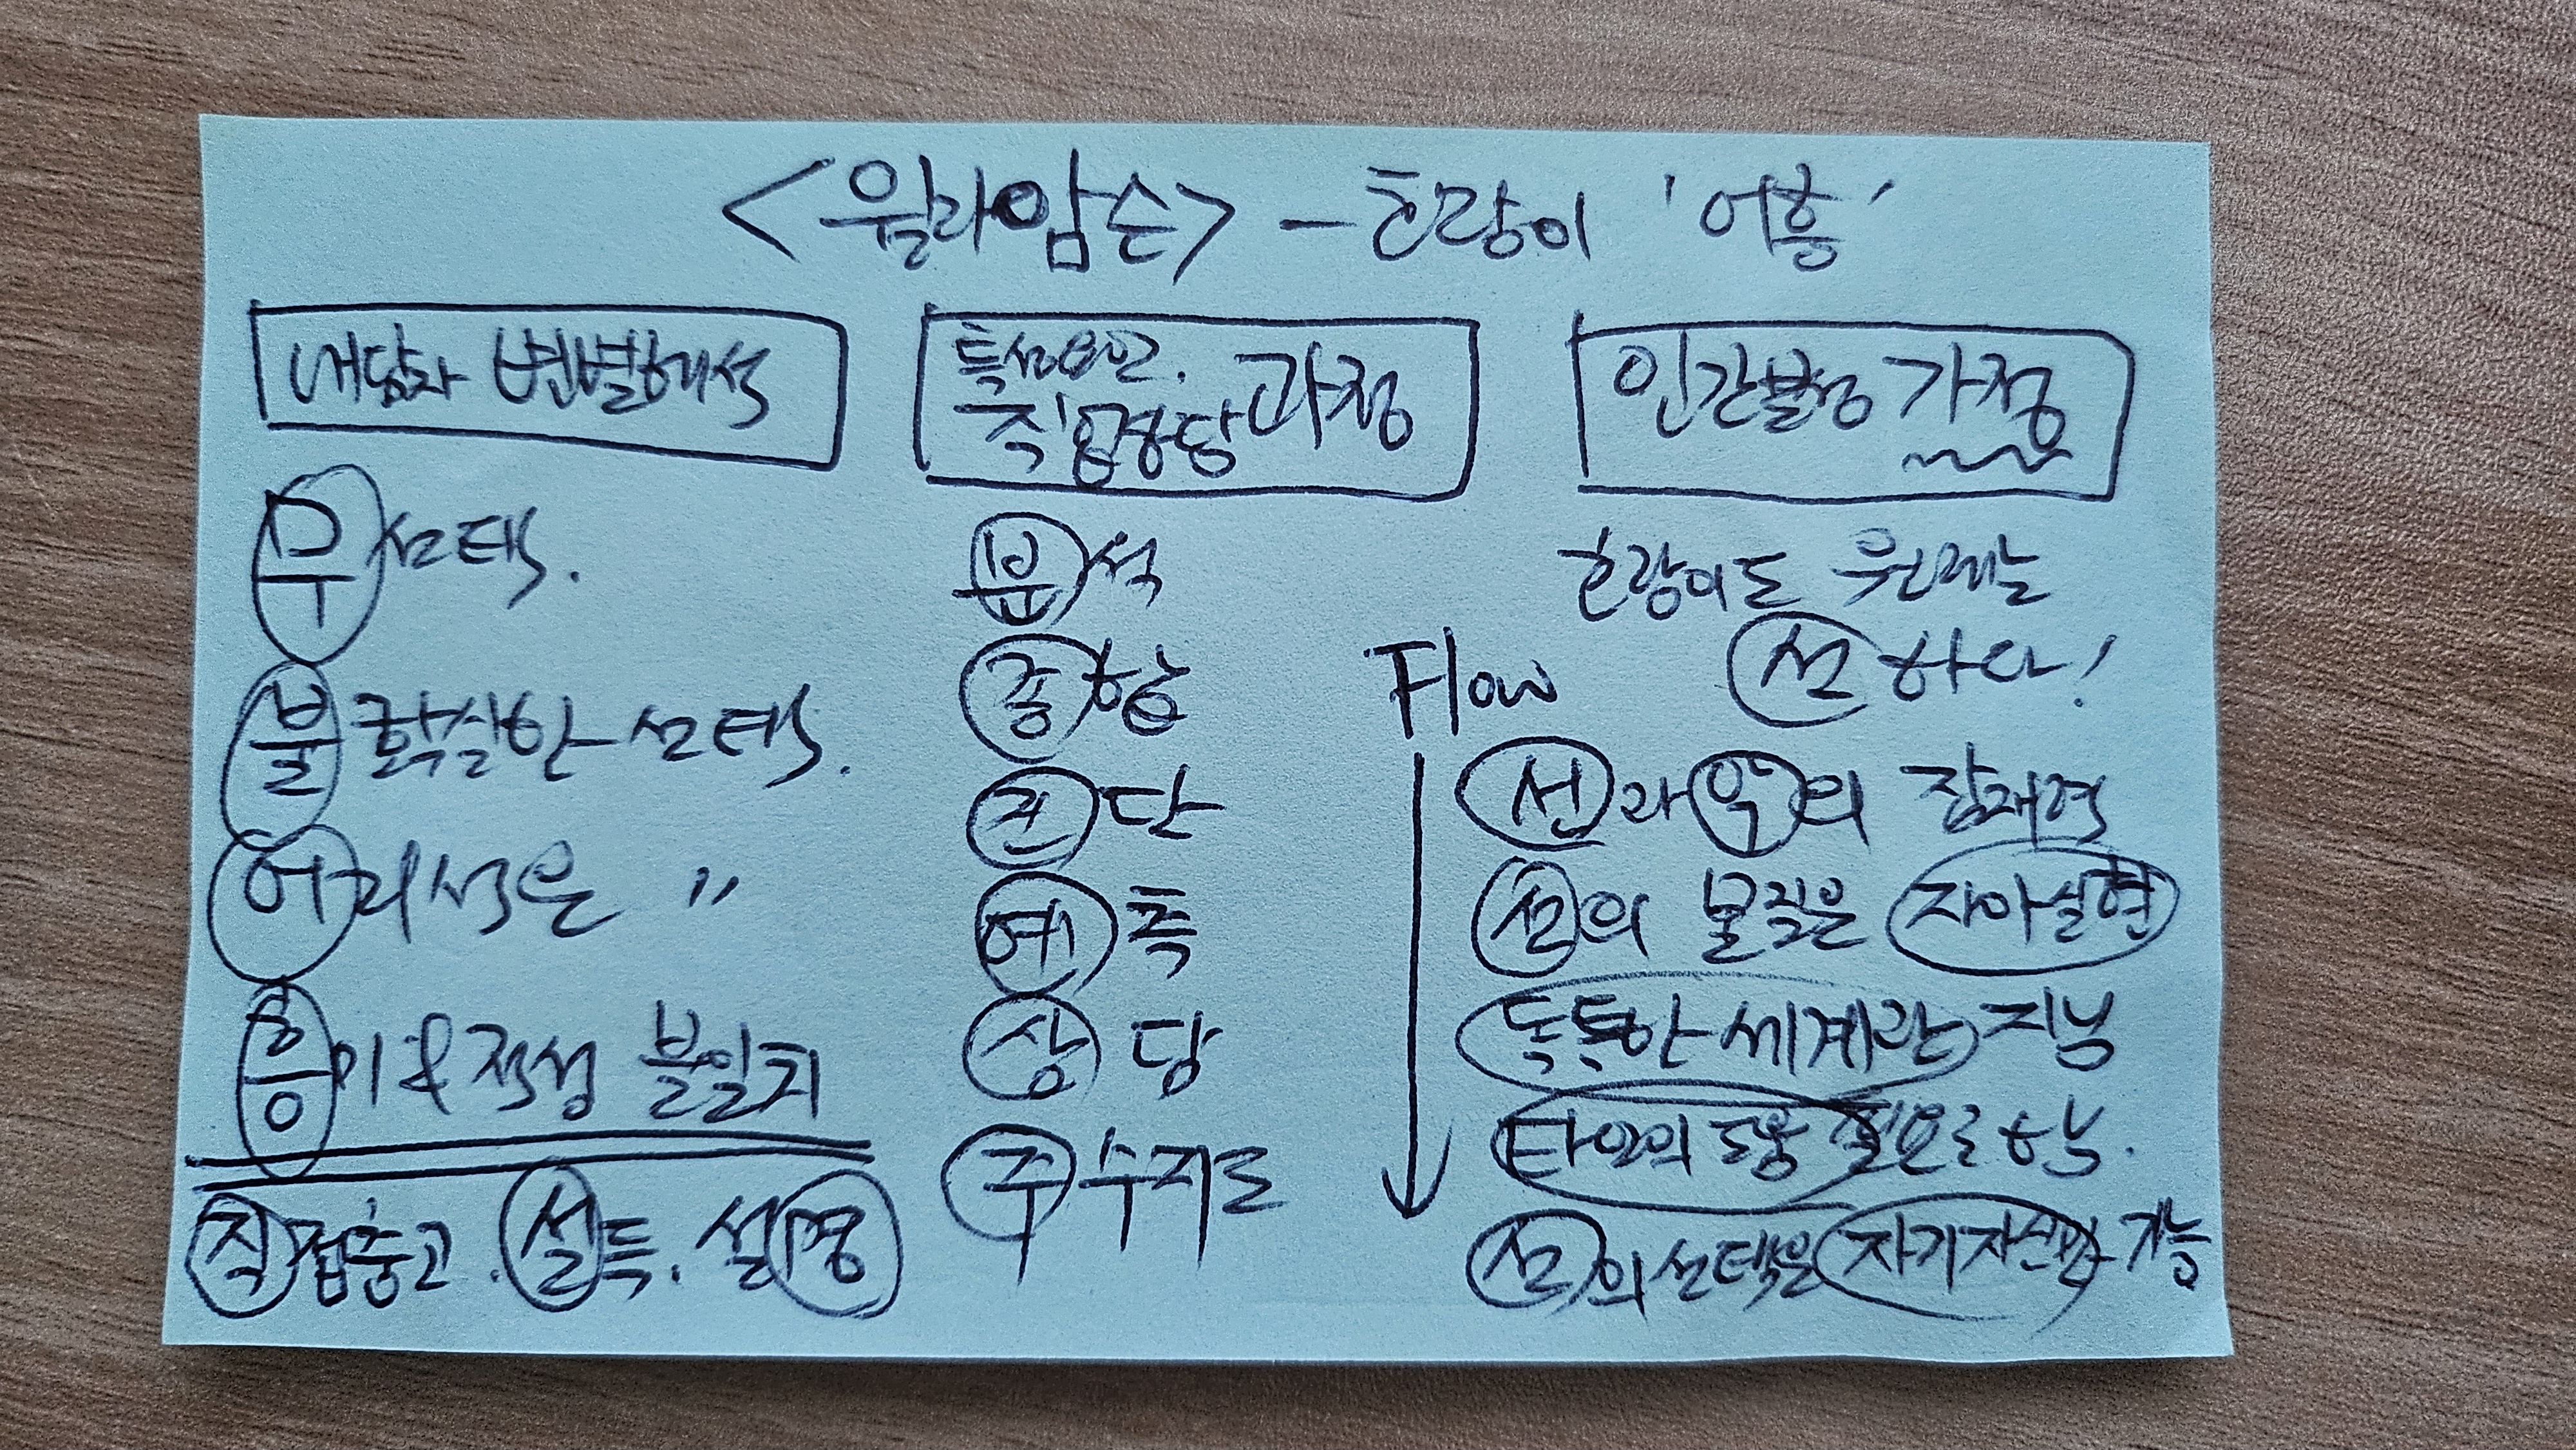 <윌리암슨> - 호랑이 '어흥'
내담자 변별해석
무선택.
불확실한 선택.
어리석은 〃
흥미&적성 불일치
직접충고. 설득. 설명
특성요인.
직업상담 과정
분석
종합
진단
예측
상담
추수지도
인간본성 가정
호랑이도 원래는
선하다!
Flow
선과 악의 잠재력
선의 본질은 자아실현
독특한 세계관 지님
타인의 도움 필요로 하는.
선의 선택은 자기자신만 가능